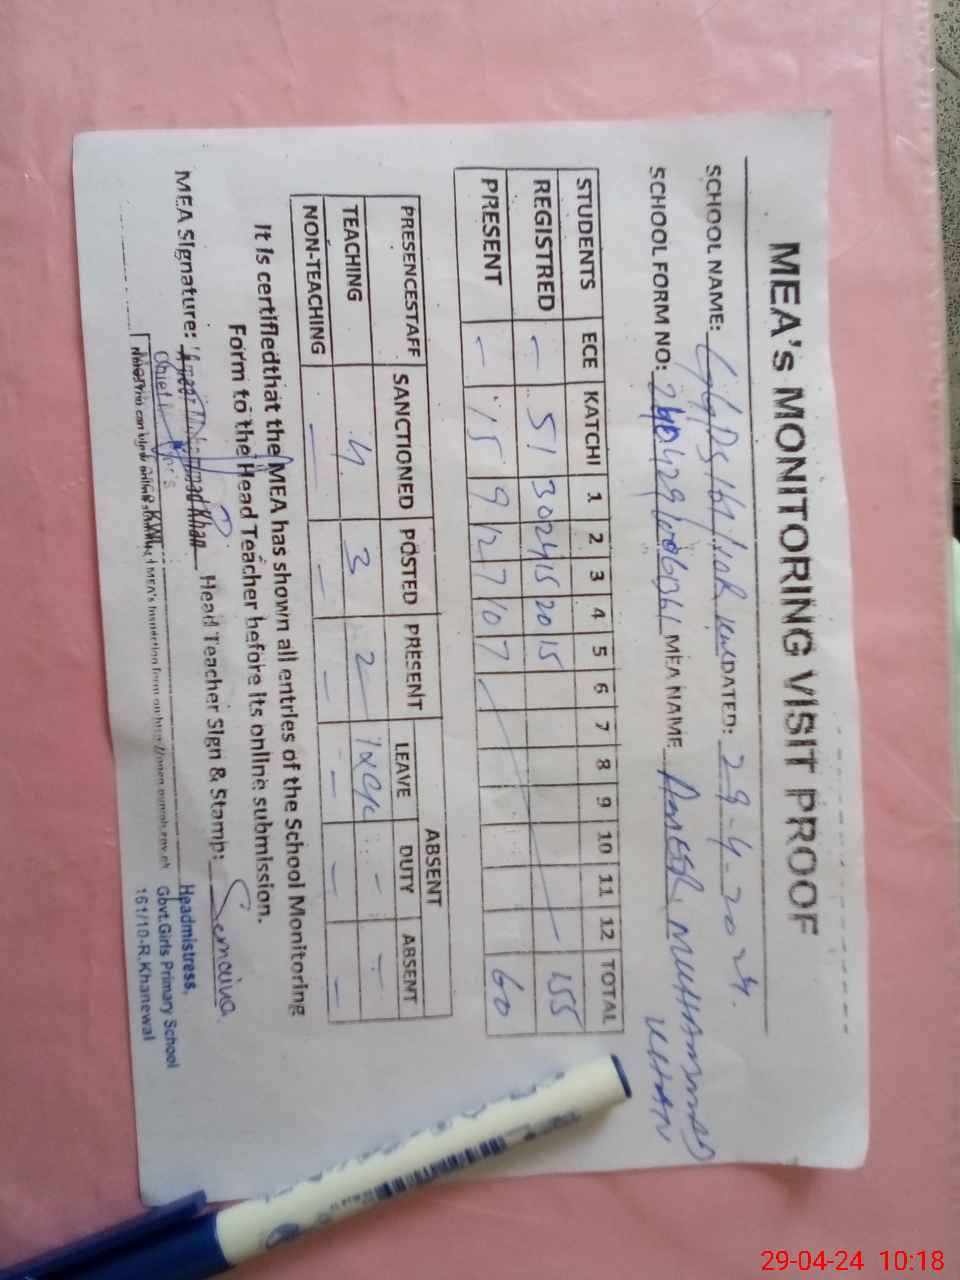 MEA's MONITORING VISIT PROOF
SCHOOL NAME: GGPS 161/10R KWL DATED: 29-4-2024.
SCHOOL FORM NO: MEA NAME AMEER MUHAMMAD KHAN
STUDENTS ECE KATCHI 1 2 3 4 5 6 7 8 9 10 11 12 TOTAL
REGISTRED - 51 30 24 15 20 15 155
PRESENT - 15 9 12 7 10 7 60
PRESENCESTAFF SANCTIONED POSTED PRESENT ABSENT
LEAVE DUTY ABSENT
TEACHING 4 3 2 - -
NON-TEACHING - - - - - -
It is certifiedthat the MEA has shown all entries of the School Monitoring
Form to the Head Teacher before its online submission.
MEA Signature: Ameer Muhammad Khan Head Teacher Sign & Stamp: Semaina
Headmistress,
Govt.Girls Primary School
161/10-R.Khanewal
MEA's Inspection form on
29-04-24 10:18